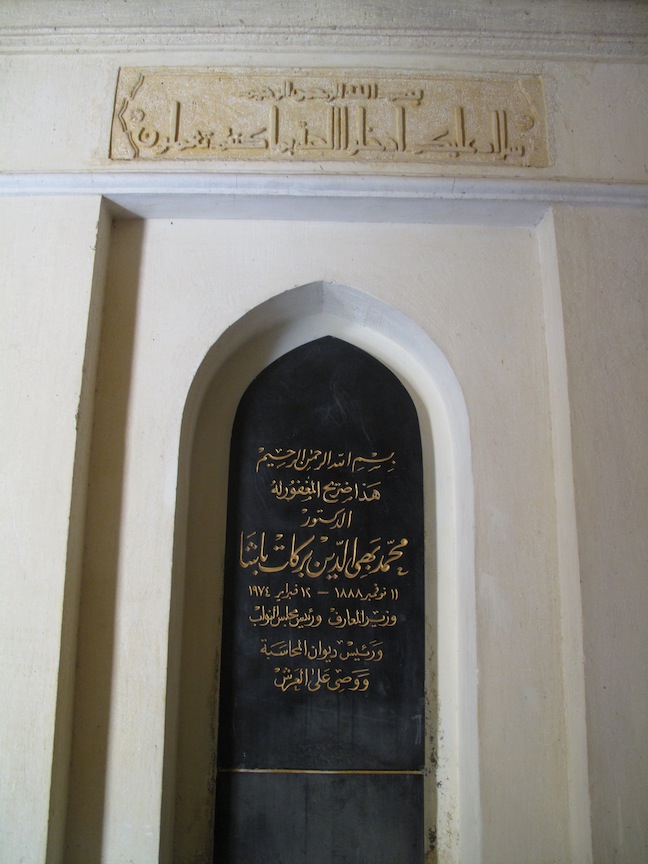 بسم الله الرحمن الرحيم
سلام عليكم ادخلوا الجنة بما كنتم تعملون
بِسْمِ اللّٰهِ الرَّحْمٰنِ الرَّحِيْمْ
هَذَا ضَرِيْح المَغْفُوْرلهُ
الدكتورْ
محمّد بَهىِ الدّينْ بركاتْ باشَا
١١ نوفمبر ١٨٨٨ – ١٢ فبراير ١٩٧٤
وَزيرْ المعَارفْ وَرئيسْ مجلسْ النوابْ
وَرَئيسْ ديوان المحَاسَبة
وَوَصِى عَلىٰ العَرشْ